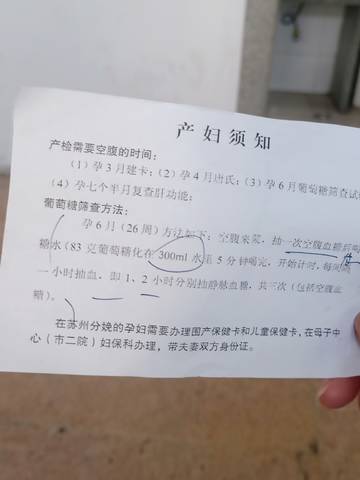 产妇须知
产检需要空腹的时间：
（1）孕3月建卡；（2）孕4月唐氏；（3）孕6月葡萄糖筛查试
（4）孕七个半月复查肝功能；
葡萄糖筛查方法：
孕6月（26周）方法如下：空腹来院，抽一次空腹血糖后喝
糖水（83克葡萄糖化在300ml水里5分钟喝完，开始计时，每间隔
一小时抽血，即1、2小时分别抽静脉血糖，共三次（包括空腹血
糖）。
在苏州分娩的孕妇需要办理围产保健卡和儿童保健卡，在母子中
心（市二院）妇保科办理，带夫妻双方身份证。